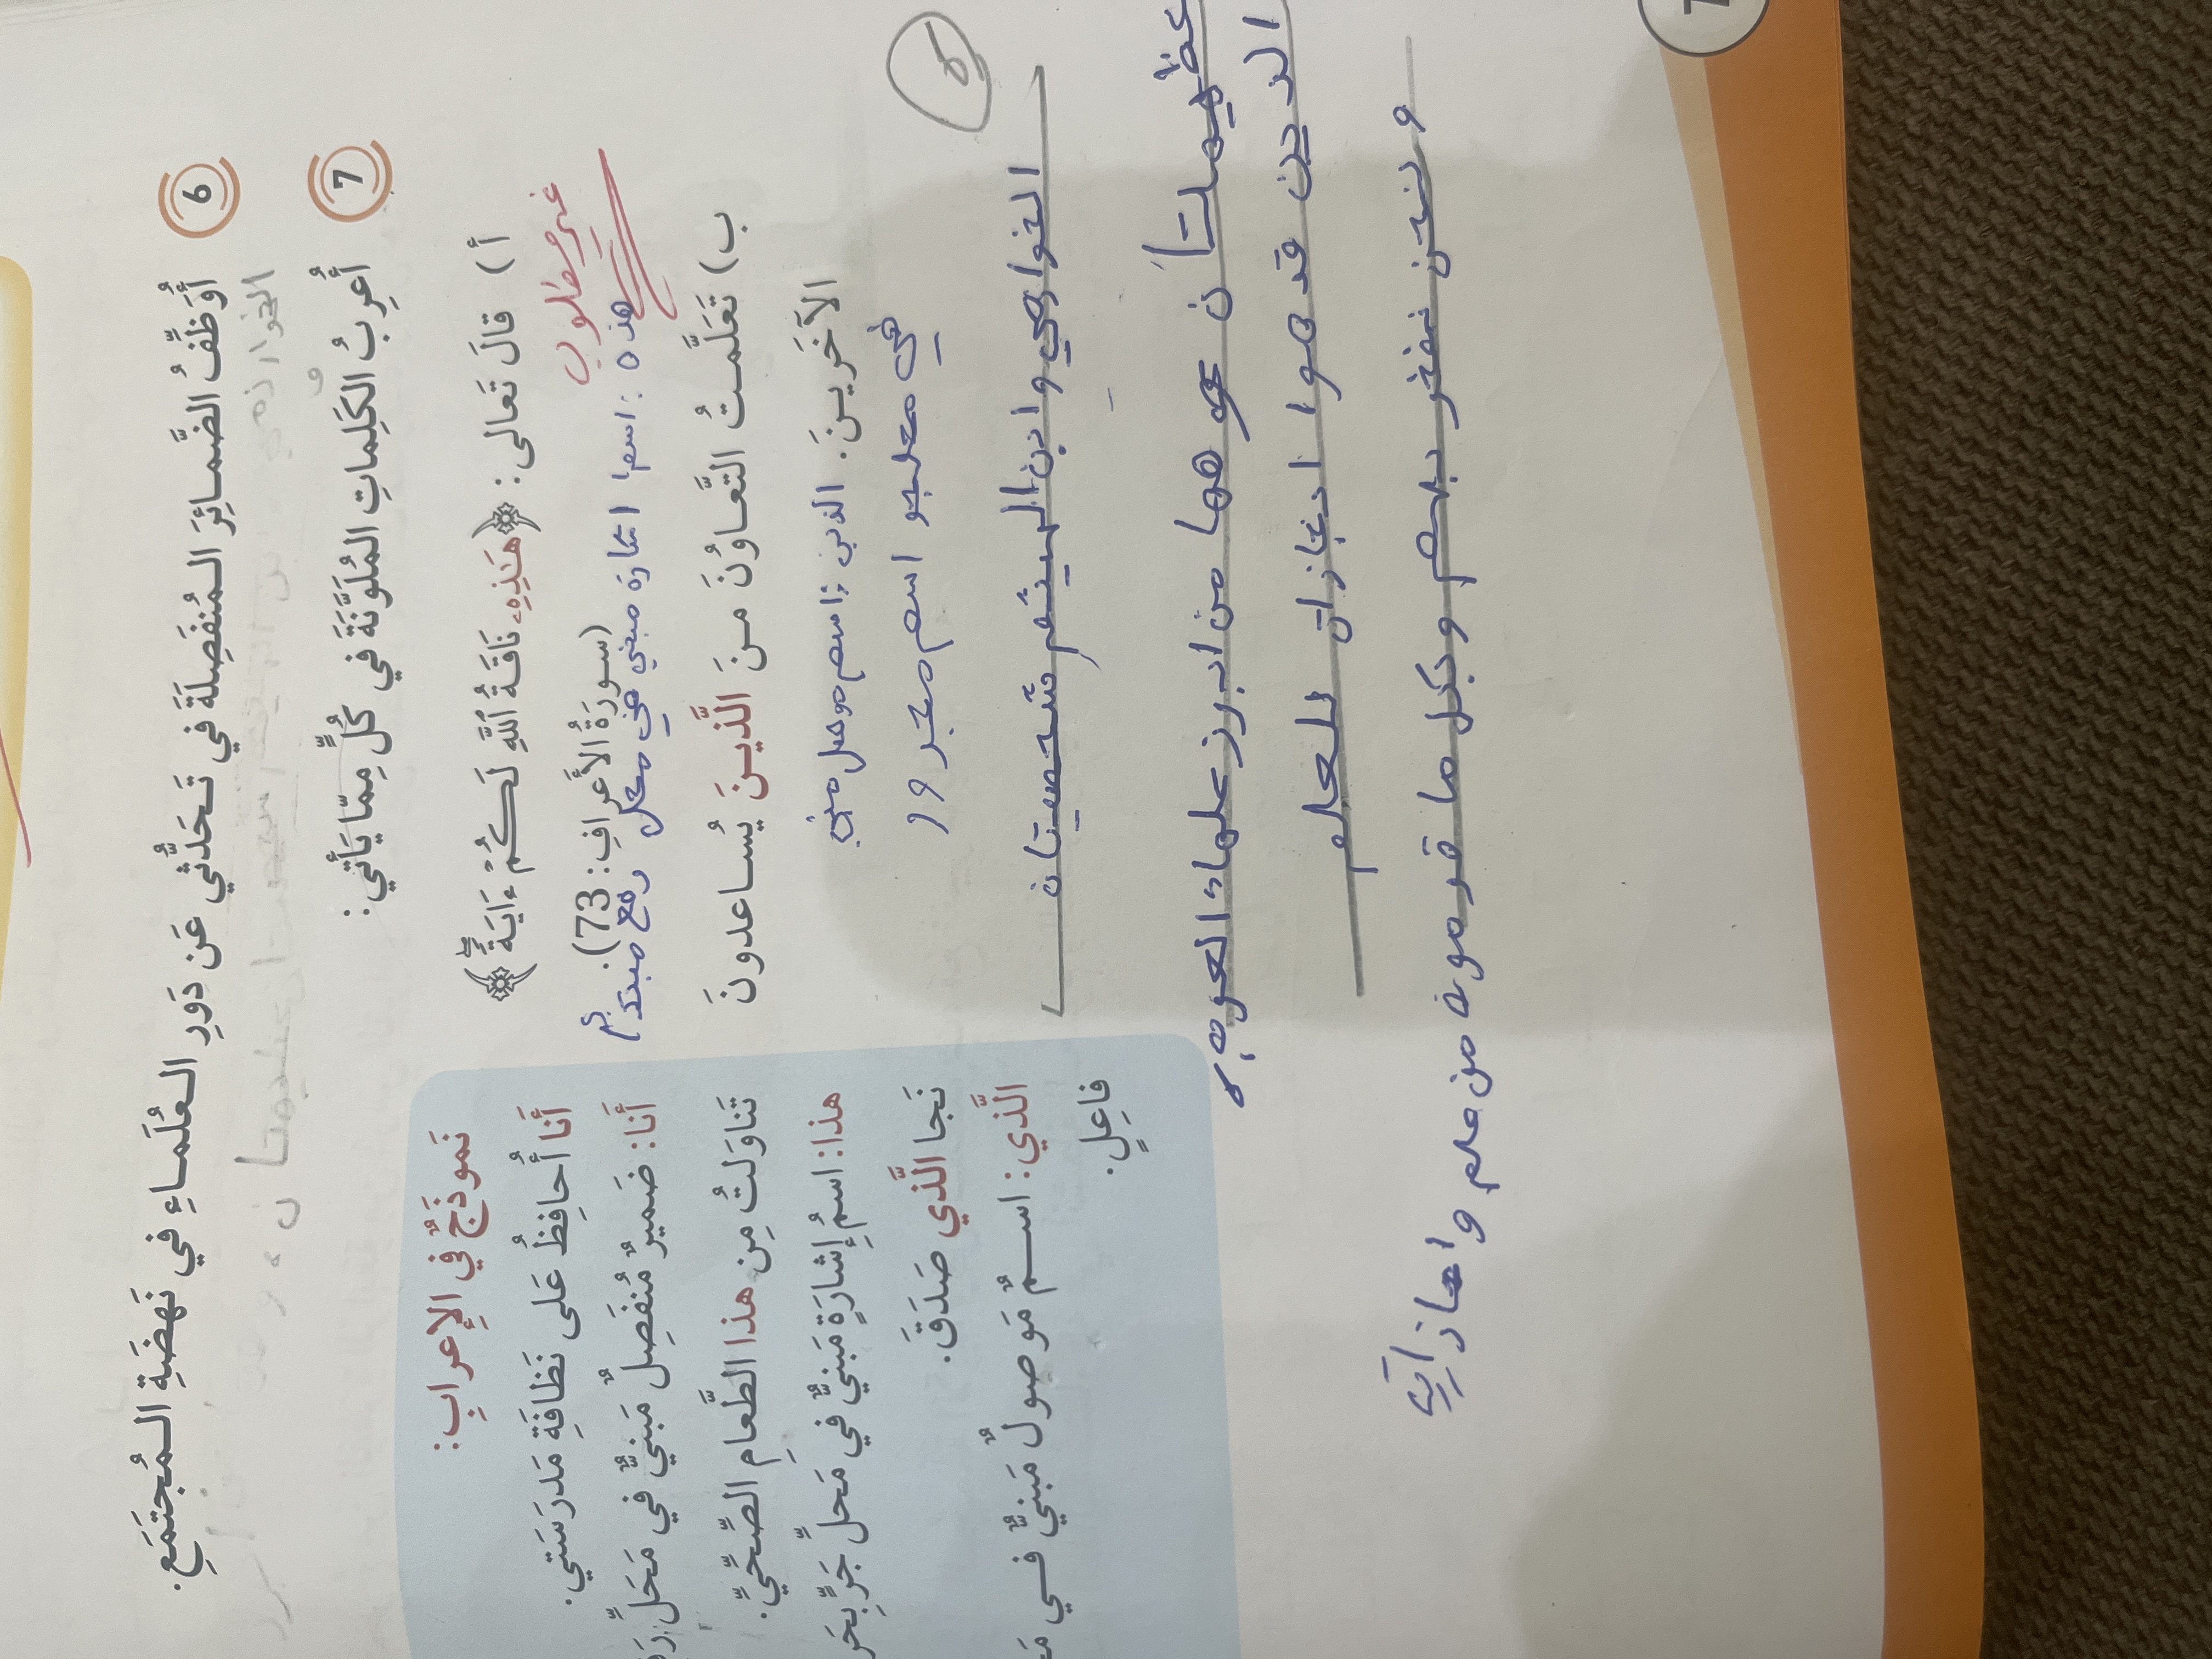 6 أُوَظِّفُ الضَّمائِرَ المُنفَصِلَةَ في تَحَدُّثي عَن دَورِ العُلَماءِ في نَهضَةِ المُجتَمَعِ.
7 أُعرِبُ الكَلِماتِ المُلَوَّنَةَ في كُلٍّ مِمّا يَأتي:
أ) قالَ تَعالى: ﴿هَـٰذِهِۦ نَاقَةُ ٱللَّهِ لَكُمْ ءَايَةً﴾
غير مطلوب
(سورَةُ الأَعرافِ: 73).
هذه: اسم اشارة مبني في محل رفع مبتدأ
ب) تَعَلَّمتُ التَّعاوُنَ مـنَ الَّذيـنَ يُسـاعدونَ
الآخَريـنَ. الذين: اسم موصل مبني
في محلجو اسم مجرور
نَموذَجٌ في الإِعرابِ:
أَنا أُحافِظُ عَلى نَظافَةِ مَدرَسَتي.
أَنا: ضَميرٌ مُنفَصِلٌ مَبنيٌّ في مَحَلِّ
تَناوَلتُ مِن هذا الطَّعامِ الصِّحِّيِّ.
هذا: اسمُ إِشارَةٍ مَبنيٌّ في مَحَلِّ جَرٍّ
نَجا الَّذي صَدَقَ.
الَّذي: اســمٌ مَوصولٌ مَبنيٌّ فــي
فاعِلٍ.
5
الخوارمي وابن الهيثم شخصيتان
عظيمتان هما من ابرز علماء العرب
الذين قدموا انجازات للعلم
ونحن نفخر بهم وبكل ما قدموه من علم و